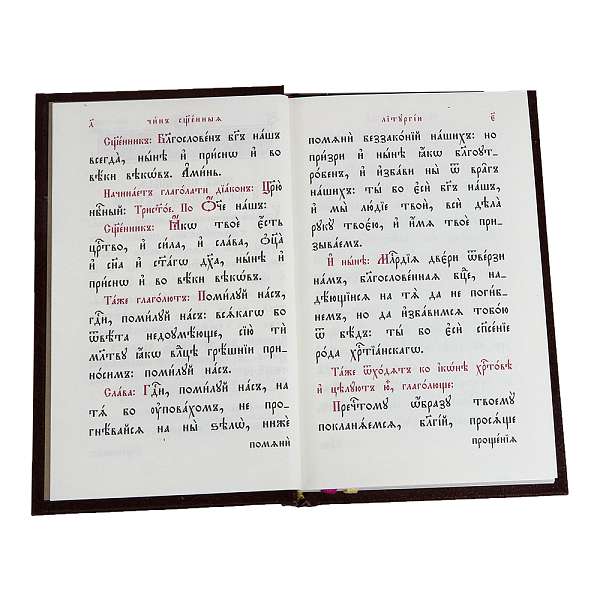 д҃ чи́нъ сщ҃е́нныѧ
Сщ҃е́нникъ: Бл҃гослове́нъ бг҃ъ на́шъ
всегда̀, ны́нѣ и҆ при́снѡ и҆ во
вѣ́ки вѣкѡ́въ. А҆ми́нь.
Начина́етъ глаго́лати дїа́конъ: Цр҃ю̀
нбⷭ҇ный: Трист҃о́е. По Ѻ҆́ч҃е на́шъ:
Сщ҃е́нникъ: Ꙗ҆́кѡ твоѐ є҆́сть
црⷭ҇тво, и҆ си́ла, и҆ сла́ва, ѻ҆ц҃а̀
и҆ сн҃а и҆ ст҃а́гѡ дх҃а, ны́нѣ и҆
при́снѡ и҆ во вѣ́ки вѣкѡ́въ.
Та́же глаго́лютъ: Поми́лꙋй на́съ,
гдⷭ҇и, поми́лꙋй на́съ: всѧ́кагѡ бо
ѿвѣ́та недоꙋмѣ́юще, сїю̀ тѝ
мл҃твꙋ ꙗ҆́кѡ влⷣцѣ грѣ́шнїи при-
но́симъ: поми́лꙋй на́съ.
Сла́ва: Гдⷭ҇и, поми́лꙋй на́съ, на
тѧ́ бо ᲂу҆пова́хомъ, не про-
гнѣ́вайсѧ на ны̀ ѕѣлѡ̀, нижѐ
помѧнѝ
лїтꙋргі́и є҃
помѧнѝ беззако́нїй на́шихъ: но
при́зри и҆ ны́нѣ ꙗ҆́кѡ бл҃гоꙋт-
ро́бенъ, и҆ и҆зба́ви ны̀ ѿ вра̑гъ
на́шихъ: ты́ бо є҆сѝ бг҃ъ на́шъ,
и҆ мы̀ лю́дїе твоѝ, всѝ дѣ́ла
рꙋкꙋ̀ твоє́ю, и҆ и҆́мѧ твоѐ при-
зыва́емъ.
И҆ ны́нѣ: Млⷭ҇рдїѧ двє́ри ѿве́рзи
на́мъ, бл҃гослове́ннаѧ бц҃е, на-
дѣ́ющїисѧ на тѧ̀ да не поги́б-
немъ, но да и҆зба́вимсѧ тобо́ю
ѿ бѣ́дъ: ты́ бо є҆сѝ сп҃се́нїе
ро́да хрⷭ҇тїа́нскагѡ.
Та́же ѿхо́дѧтъ ко і҆кѡ́нѣ хрⷭ҇то́вѣ
и҆ цѣлꙋ́ютъ ю҆̀, глаго́люще:
Пречⷭ҇томꙋ ѡ҆́бразꙋ твоемꙋ̀
покланѧ́емсѧ, бл҃гі́й, просѧ́ще
проще́нїѧ